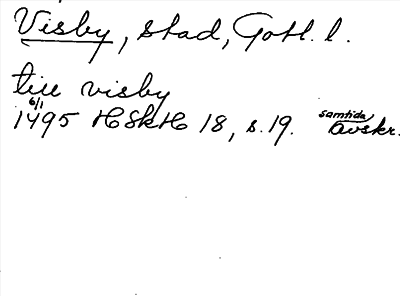 Visby, stad, Gotl. l.
till visby
1495 6/1 HSkH 18, s. 19. samtida avskr.